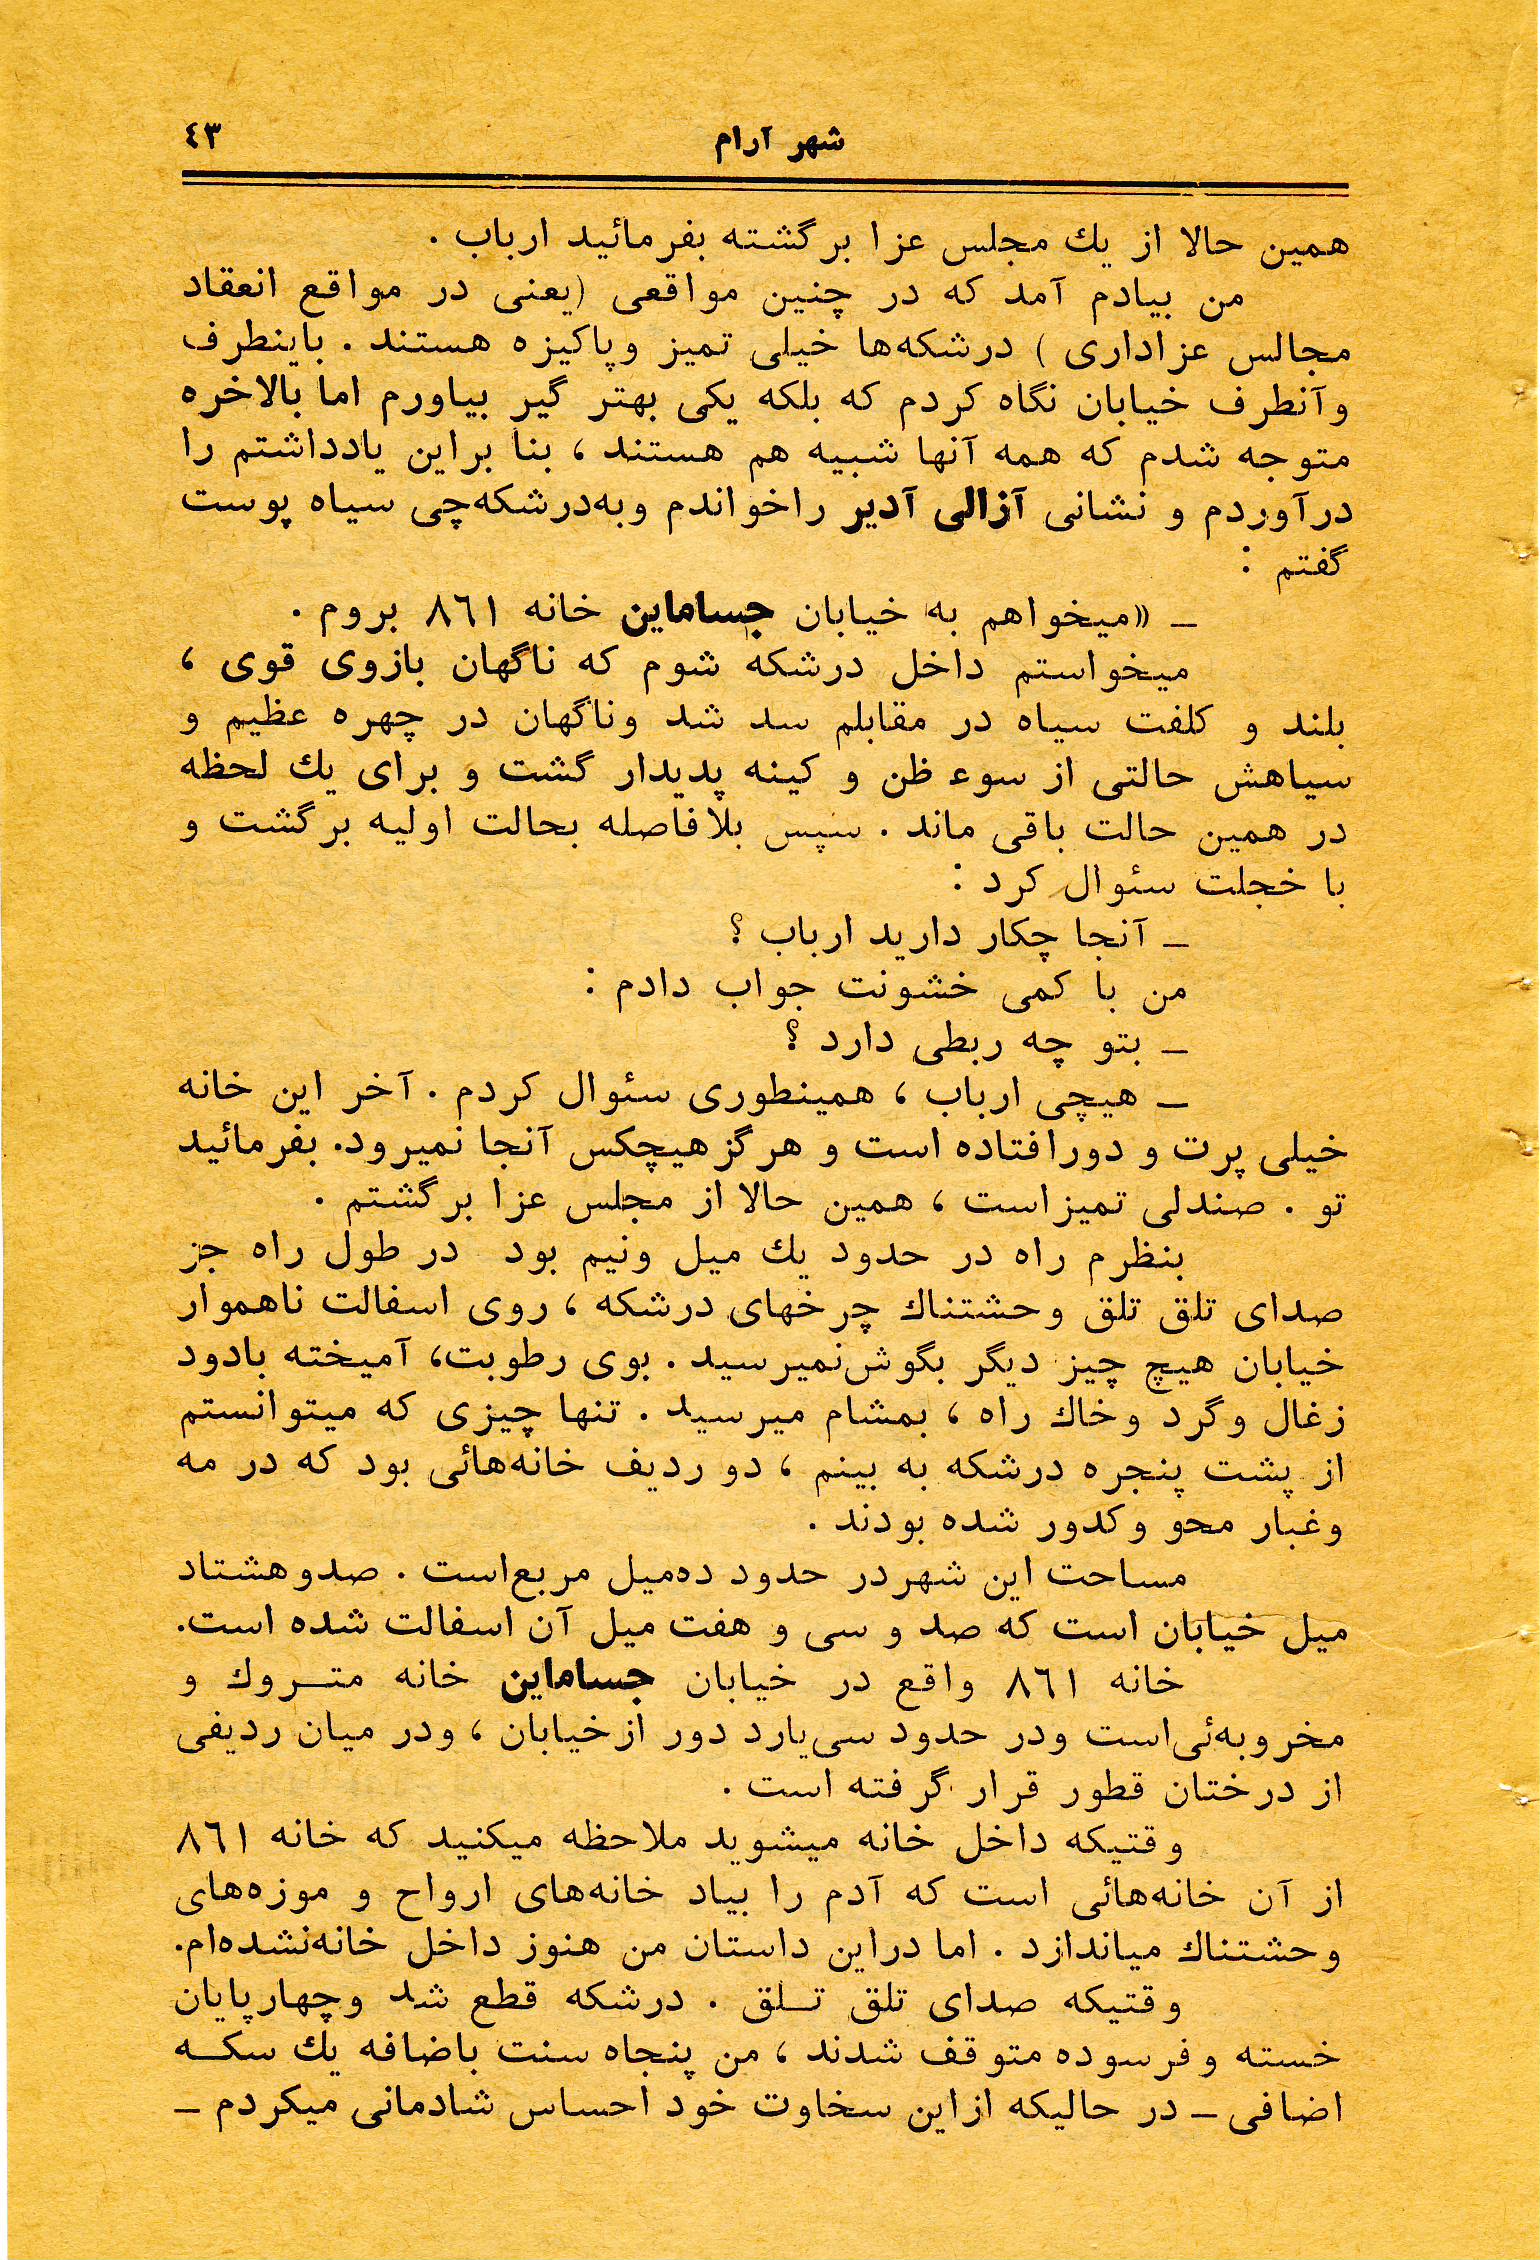 شهر آرام ٤٣
همین حالا از یك مجلس عزا برگشته بفرمائید ارباب .
من بیادم آمد که در چنین مواقعی (یعنی در مواقع انعقاد
مجالس عزاداری ) درشکه‌ها خیلی تمیز وپاکیزه هستند . باینطرف
وآنطرف خیابان نگاه کردم که بلکه یکی بهتر گیر بیاورم اما بالاخره
متوجه شدم که همه آنها شبیه هم هستند ، بنا براین یادداشتم را
درآوردم و نشانی آزالی آدیر راخواندم وبه‌درشکه‌چی سیاه پوست
گفتم :
ـ «میخواهم به خیابان جساماین خانه ٨٦١ بروم .
میخواستم داخل درشکه شوم که ناگهان بازوی قوی ،
بلند و کلفت سیاه در مقابلم سد شد وناگهان در چهره عظیم و
سیاهش حالتی از سوء ظن و کینه پدیدار گشت و برای یك لحظه
در همین حالت باقی ماند . سپس بلافاصله بحالت اولیه برگشت و
با خجلت سئوال کرد :
ـ آنجا چکار دارید ارباب ؟
من با کمی خشونت جواب دادم :
ـ بتو چه ربطی دارد ؟
ـ هیچی ارباب ، همینطوری سئوال کردم . آخر این خانه
خیلی پرت و دورافتاده است و هرگز هیچکس آنجا نمیرود. بفرمائید
تو . صندلی تمیزاست ، همین حالا از مجلس عزا برگشتم .
بنظرم راه در حدود یك میل ونیم بود در طول راه جز
صدای تلق تلق وحشتناك چرخهای درشکه ، روی اسفالت ناهموار
خیابان هیچ چیز دیگر بگوش‌نمیرسید . بوی رطوبت، آمیخته بادود
زغال وگرد وخاك راه ، بمشام میرسید . تنها چیزی که میتوانستم
از پشت پنجره درشکه به بینم ، دو ردیف خانه‌هائی بود که در مه
وغبار محو وکدور شده بودند .
مساحت این شهردر حدود ده‌میل مربع‌است . صدوهشتاد
میل خیابان است که صد و سی و هفت میل آن اسفالت شده است.
خانه ٨٦١ واقع در خیابان جساماین خانه متـروك و
مخروبه‌ئی‌است ودر حدود سی‌یارد دور ازخیابان ، ودر میان ردیفی
از درختان قطور قرار گرفته است .
وقتیکه داخل خانه میشوید ملاحظه میکنید که خانه ٨٦١
از آن خانه‌هائی است که آدم را بیاد خانه‌های ارواح و موزه‌های
وحشتناك میاندازد . اما دراین داستان من هنوز داخل خانه‌نشده‌ام.
وقتیکه صدای تلق تـلق . درشکه قطع شد وچهارپایان
خسته وفرسوده متوقف شدند ، من پنجاه سنت باضافه یك سکـه
اضافی ـ در حالیکه ازاین سخاوت خود احساس شادمانی میکردم ـ